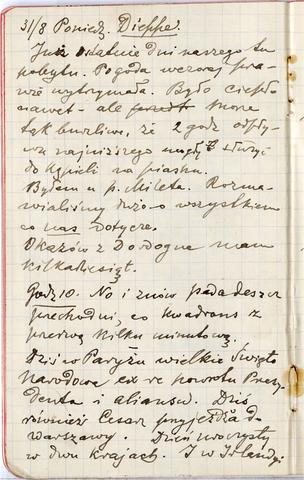 31/8 Poniedz. Dieppe.
Już ostatnie dni naszego tu
pobytu. Pogoda wczoraj pra-
wie wytrzymała. Było ciepło
nawet - ale morze
tak burzliwe, że 2 godz odpły-
wu najniższego mogły służyć
do kąpieli na piasku.
Byłem u p. Mileta. Rozma-
wialiśmy dużo o wszystkiem
co nas dotyczy.
Okazów z Dordogne mam
kilkadziesiąt.
Godz 10. No i znów pada deszcz
przechodni, co kwadrans z
przerwą kilku minutową.
Dziś w Paryżu wielkie Święto
Narodowe ex re powrotu Prezy-
denta i aliansu. Dziś
również Cesarz przyjeżdża do
Warszawy. Dzień uroczysty
w dwu krajach. I w Irlandyi